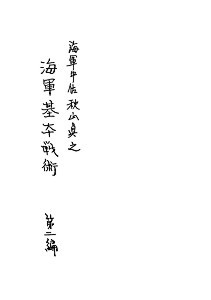 海軍中佐 秋山真之
海軍基本戦術 第二編